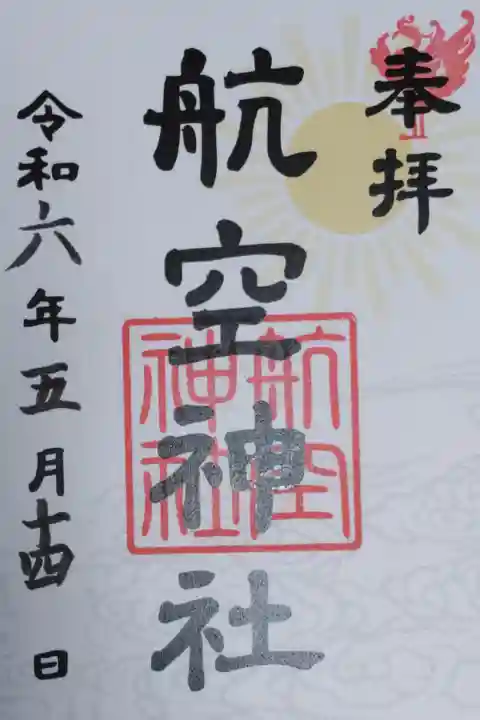 奉拝
航空神社
航空神社
令和六年五月十四日